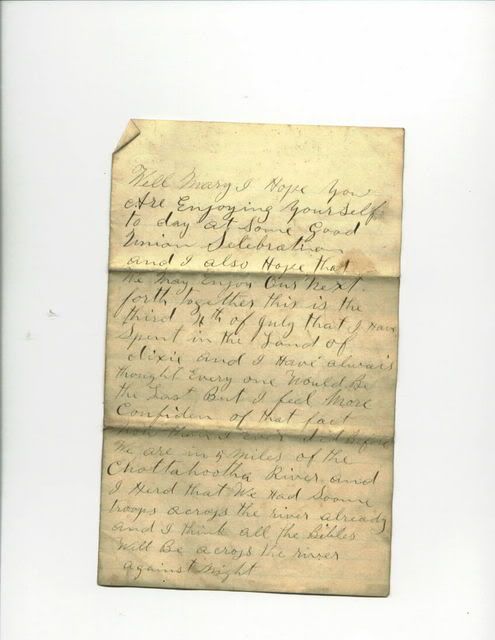 Well Mary I Hope You
Are Enjoying Yourself
to day at Some Good
Union Selebration
and I also Hope that
We May Enjoy Our Next
forth together this is the
third 4th of July that I Have
Spent in the Land of
dixie and I Have always
thought Every one Would Be
the Last But I feel More
Confiden of that fact
than I Ever did Before
We are in 5 Miles of the
Chattahootha River and
I Herd that We Had Soome
troops across the river already
and I think all the
Will Be across the river
against Night